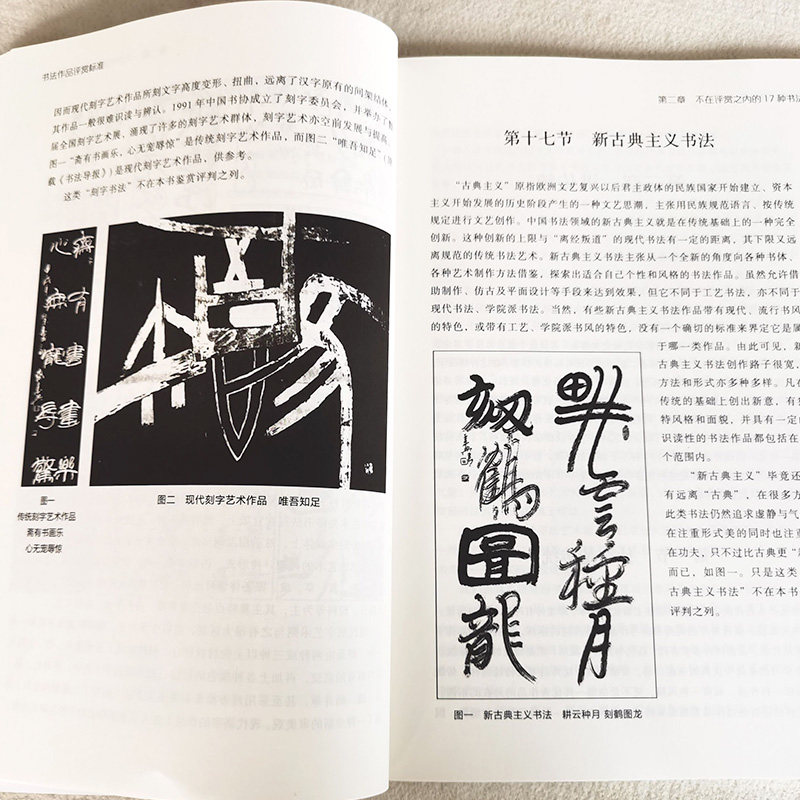 书法作品评赏标准
因而现代刻字艺术作品所刻文字高度变形、扭曲，远离了汉字原有的间架结体，
其作品一般很难识读与辨认。1991年中国书协成立了刻字委员会，并举办了
届全国刻字艺术展，涌现了许多的刻字艺术群体，刻字艺术亦空前发展与提高
图一“斋有书画乐，心无宠辱惊”是传统刻字艺术作品，而图二“唯吾知足”（
载《书法导报》）是现代刻字艺术作品，供参考。
这类“刻字书法”不在本书鉴赏评判之列。
斋有书画乐
心无宠辱惊
图一
传统刻字艺术作品
斋有书画乐
心无宠辱惊
图二 现代刻字艺术作品 唯吾知足
第二章 不在评赏之内的17种书法
第十七节 新古典主义书法
“古典主义”原指欧洲文艺复兴以后君主政体的民族国家开始建立、资本
主义开始发展的历史阶段产生的一种文艺思潮，主张用民族规范语言、按传统
规定进行文艺创作。中国书法领域的新古典主义就是在传统基础上的一种完全
创新。这种创新的上限与“离经叛道”的现代书法有一定的距离，其下限又远
离规范的传统书法艺术。新古典主义书法主张从一个全新的角度向各种书体、
各种艺术制作方法借鉴，探索出适合自己个性和风格的书法作品。虽然允许借
助制作、仿古及平面设计等手段来达到效果，但它不同于工艺书法，亦不同于
现代书法、学院派书法。当然，有些新古典主义书法作品带有现代、流行书风
的特色，或带有工艺、学院派书风的特色，没有一个确切的标准来界定它是属
于哪一类作品。由此可见，新
古典主义书法创作路子很宽，
方法和形式亦多种多样。凡在
传统的基础上创出新意，有独
特风格和面貌，并具有一定的
识读性的书法作品都包括在
个范围内。
“新古典主义”毕竟还
有远离“古典”，在很多方
此类书法仍然追求虚静与气
在注重形式美的同时也注重
在功夫，只不过比古典更“
而已，如图一。只是这类
古典主义书法”不在本书
评判之列。
耕云種月
刻鶴圖龍
图一 新古典主义书法 耕云种月 刻鹤图龙